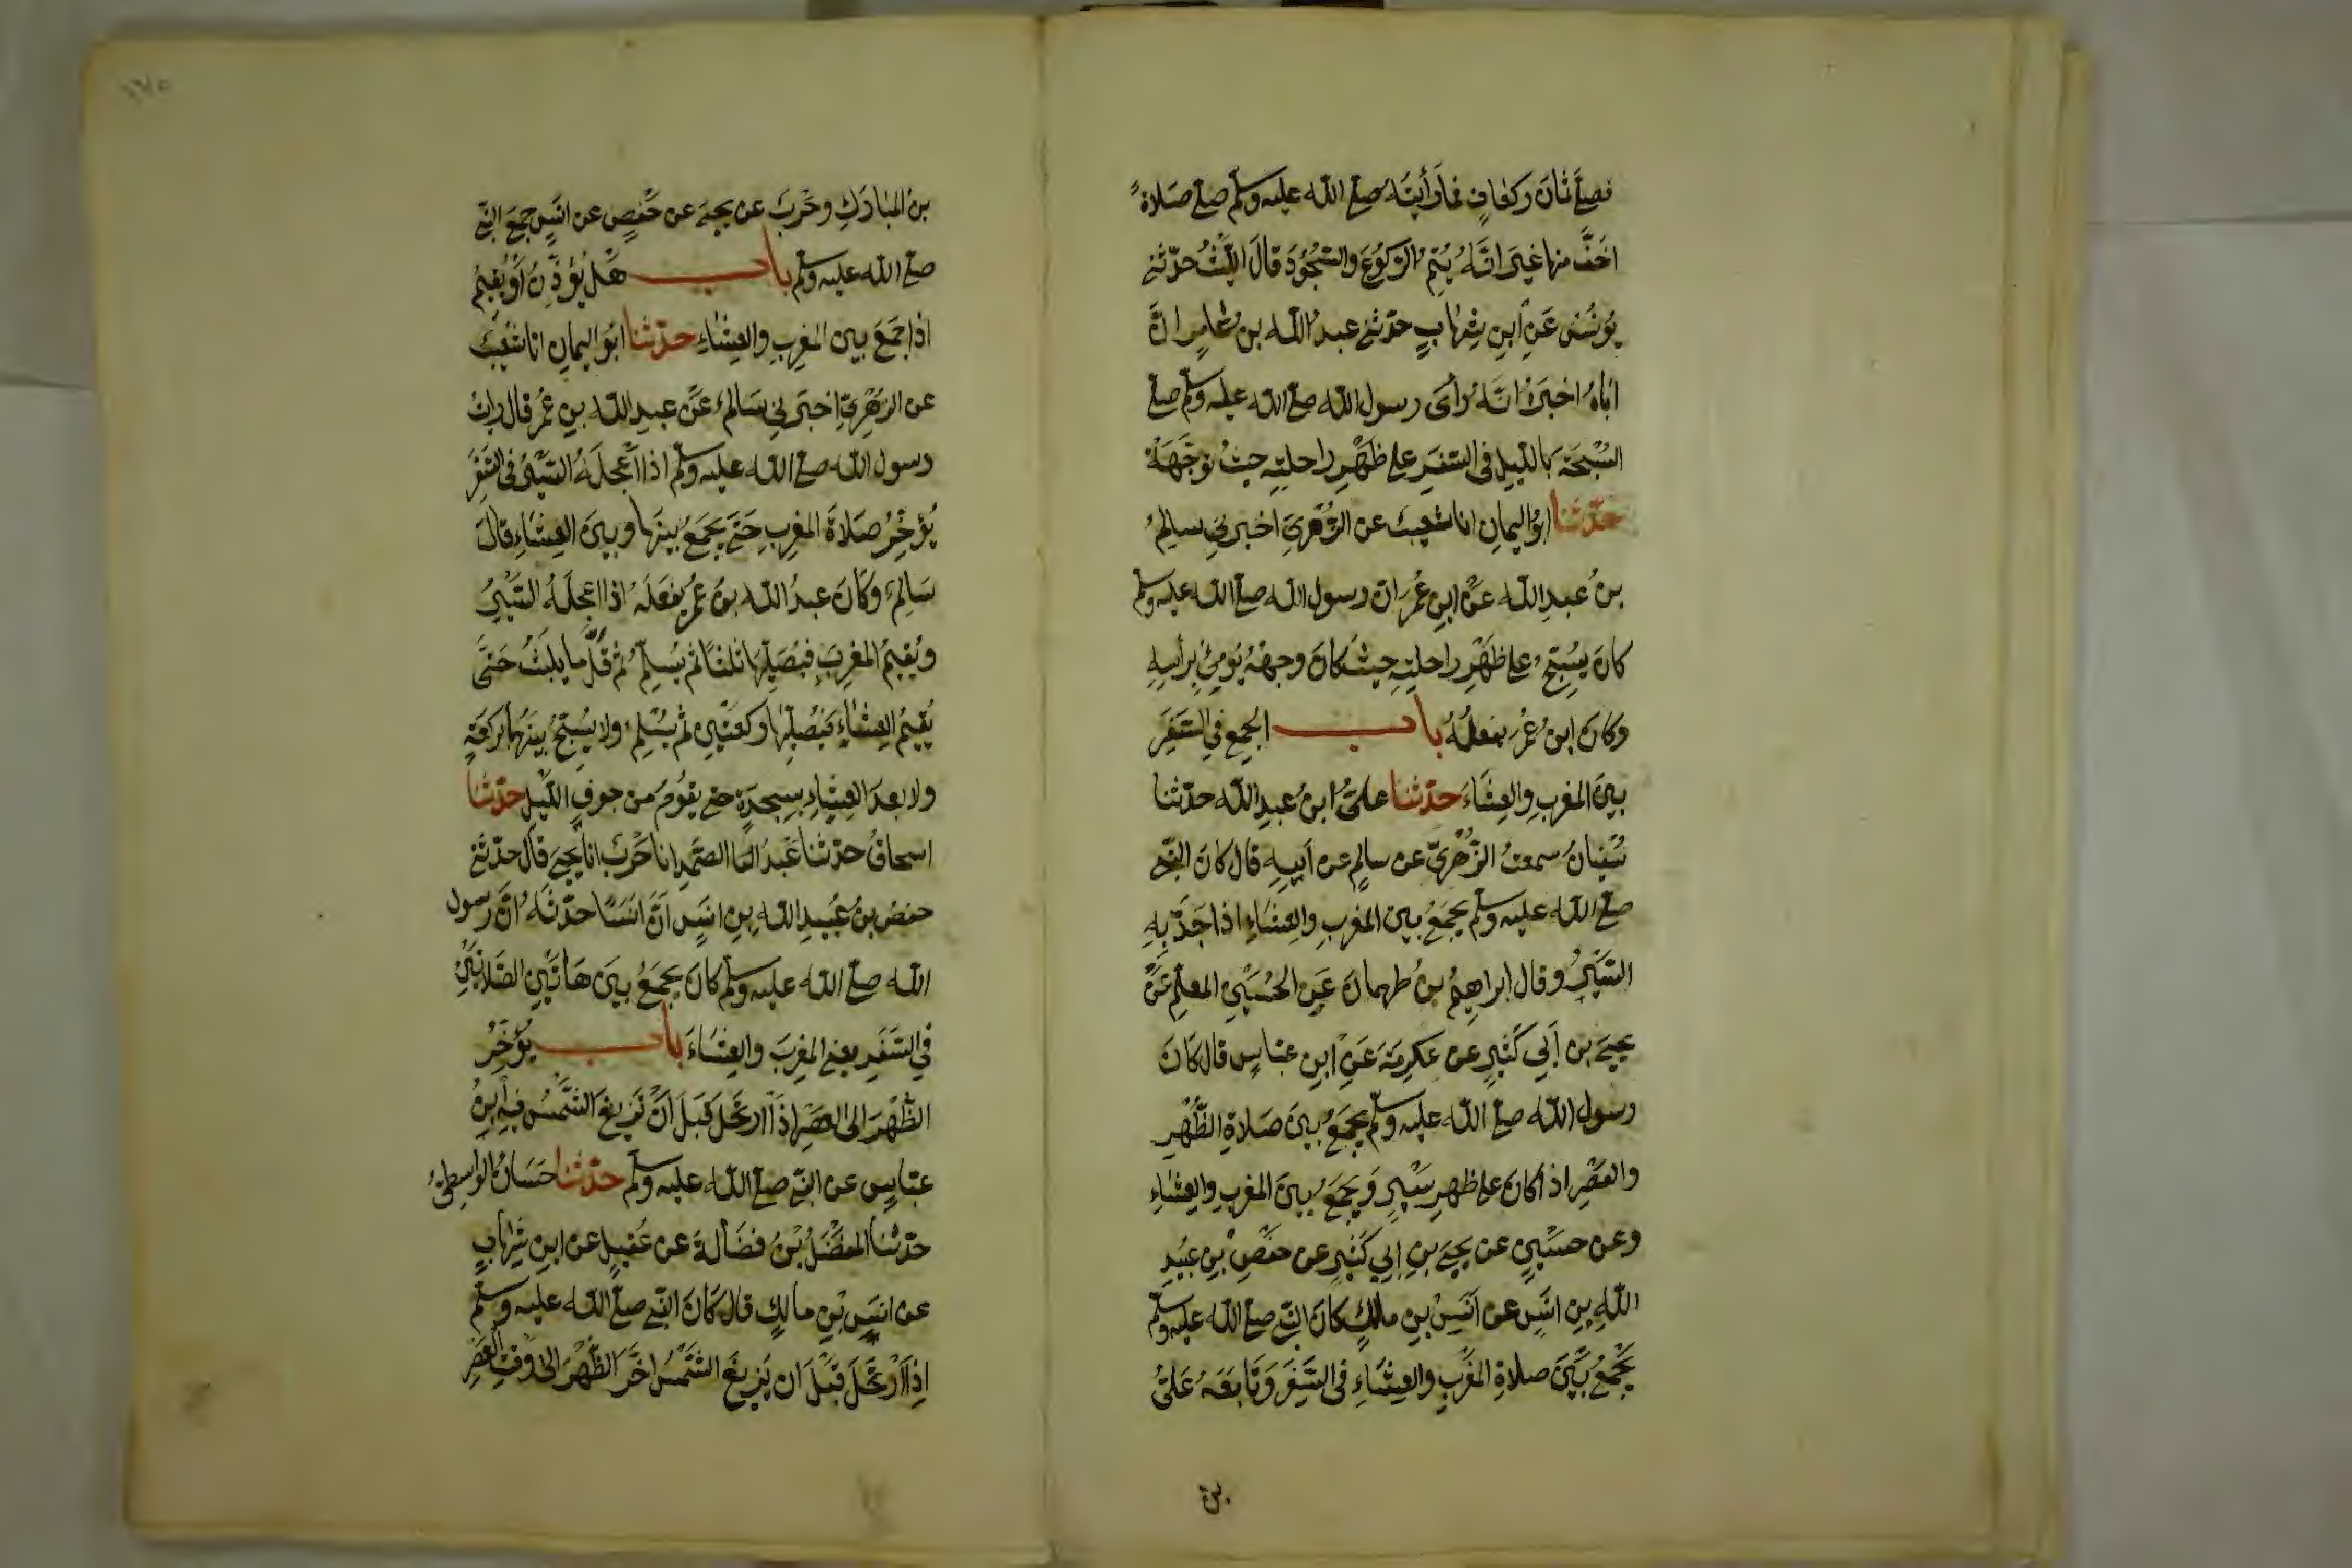 فصلّى ثمان ركعات فما رأيته صلى الله عليه وسلم صلى صلاةً
اخفّ منها غير انّه يُتِمُّ الركوع والسجود قال الليث حدّثني
يونس عن ابن شهاب حدثني عبد الله بن عامر انّ
اباه اخبره انّه رأى رسول الله صلى الله عليه وسلم صلى
السُّبْحَة بالليل في السفر على ظَهْرِ راحلته حيث توجّهت
حدّثنا ابو اليمان انا شعيب عن الزهري اخبرني سالم
بن عبد الله عن ابن عمر ان رسول الله صلى الله عليه وسلم
كان يسبّح على ظهر راحلته حيث كان وجهه يومئ برأسه
وكان ابن عمر يفعله باب الجمع في السفر
بين المغرب والعشاء حدّثنا عليّ ابن عبد الله حدّثنا
سفيان سمعت الزهريّ عن سالم عن أبيه قال كان النبي
صلى الله عليه وسلم يجمع بين المغرب والعشاء اذا جدّ به
السير وقال ابراهيم بن طهمان عن الحسين المعلّم عن
يحيى بن أبي كثير عن عكرمة عن ابن عباس قال كان
رسول الله صلى الله عليه وسلم يجمع بين صلاة الظهر
والعصر اذا كان على ظهر سير ويجمع بين المغرب والعشاء
وعن حسين عن يحيى بن ابي كثير عن حفص بن عبيد
الله بن انس عن أنس بن مالك كان النبي صلى الله عليه وسلم
يجمع بين صلاة المغرب والعشاء في السفر وتابعه عليّ
بن
بن المبارك وحرب عن يحيى عن حفص عن انس جمع النبي
صلى الله عليه وسلم باب هل يؤذّن أو يقيم
اذا جمع بين المغرب والعشاء حدّثنا ابو اليمان انا شعيب
عن الزهريّ اخبرني سالم عن عبد الله بن عمر قال رايت
رسول الله صلى الله عليه وسلم اذا اعجله السير في السفر
يؤخّر صلاة المغرب حتى يجمع بينها وبين العشاء قال
سالم وكان عبد الله بن عمر يفعله اذا اعجله السير
ويقيم المغرب فيصلّيها ثلثا ثم يسلّم ثم قلّ ما يلبث حتّى
يقيم العشاء فيصلّيها ركعتين ثم يسلّم ولا يسبّح بينهما بركعة
ولا بعد العشاء بسجدة حتى يقوم من جوف الليل حدّثنا
اسحاق حدّثنا عبد الصمد انا حرب انا يحيى قال حدّثني
حفص بن عبيد الله بن انس أنّ أنسًا حدّثه انّ رسول
الله صلى الله عليه وسلم كان يجمع بين هاتين الصلاتين
في السفر يعني المغرب والعشاء باب يؤخّر
الظهر الى العصر اذا ارتحل قبل ان تزيغ الشمس فيه ابن
عبّاس عن النبي صلى الله عليه وسلم حدّثنا حسان الواسطي
حدّثنا المفضّل بن فضالة عن عقيل عن ابن شهاب
عن انس بن مالك قال كان النبي صلى الله عليه وسلم
اذا ارتحل قبل ان تزيغ الشمس اخّر الظهر الى وقت العصر